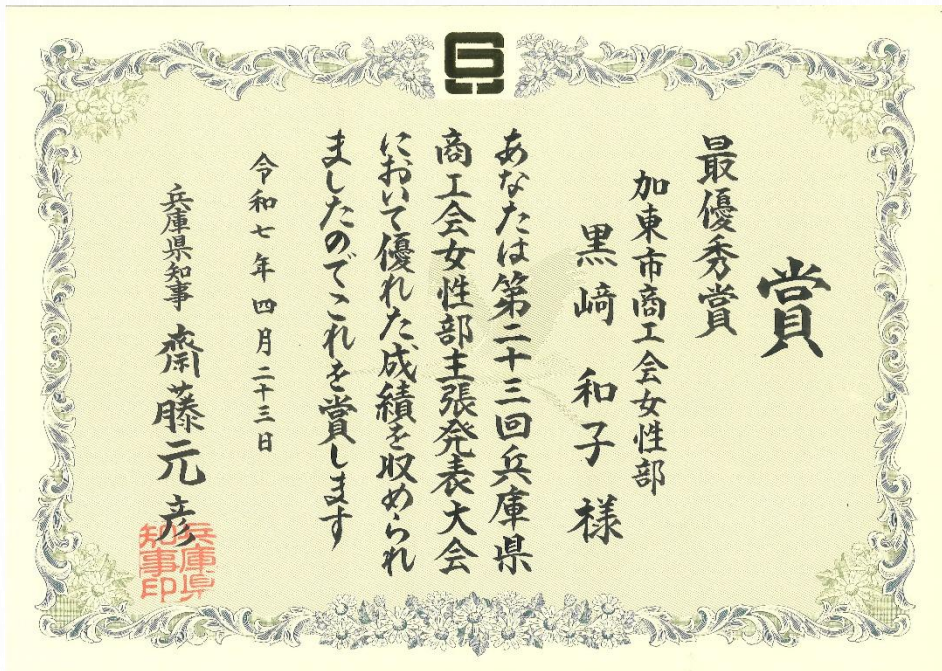 賞
最優秀賞
加東市商工会女性部
黒﨑 和子 様
あなたは第二十三回兵庫県
商工会女性部主張発表大会
において優れた成績を収められ
ましたのでこれを賞します
令和七年四月二十三日
兵庫県知事 齋藤元彦
兵庫県
知事印